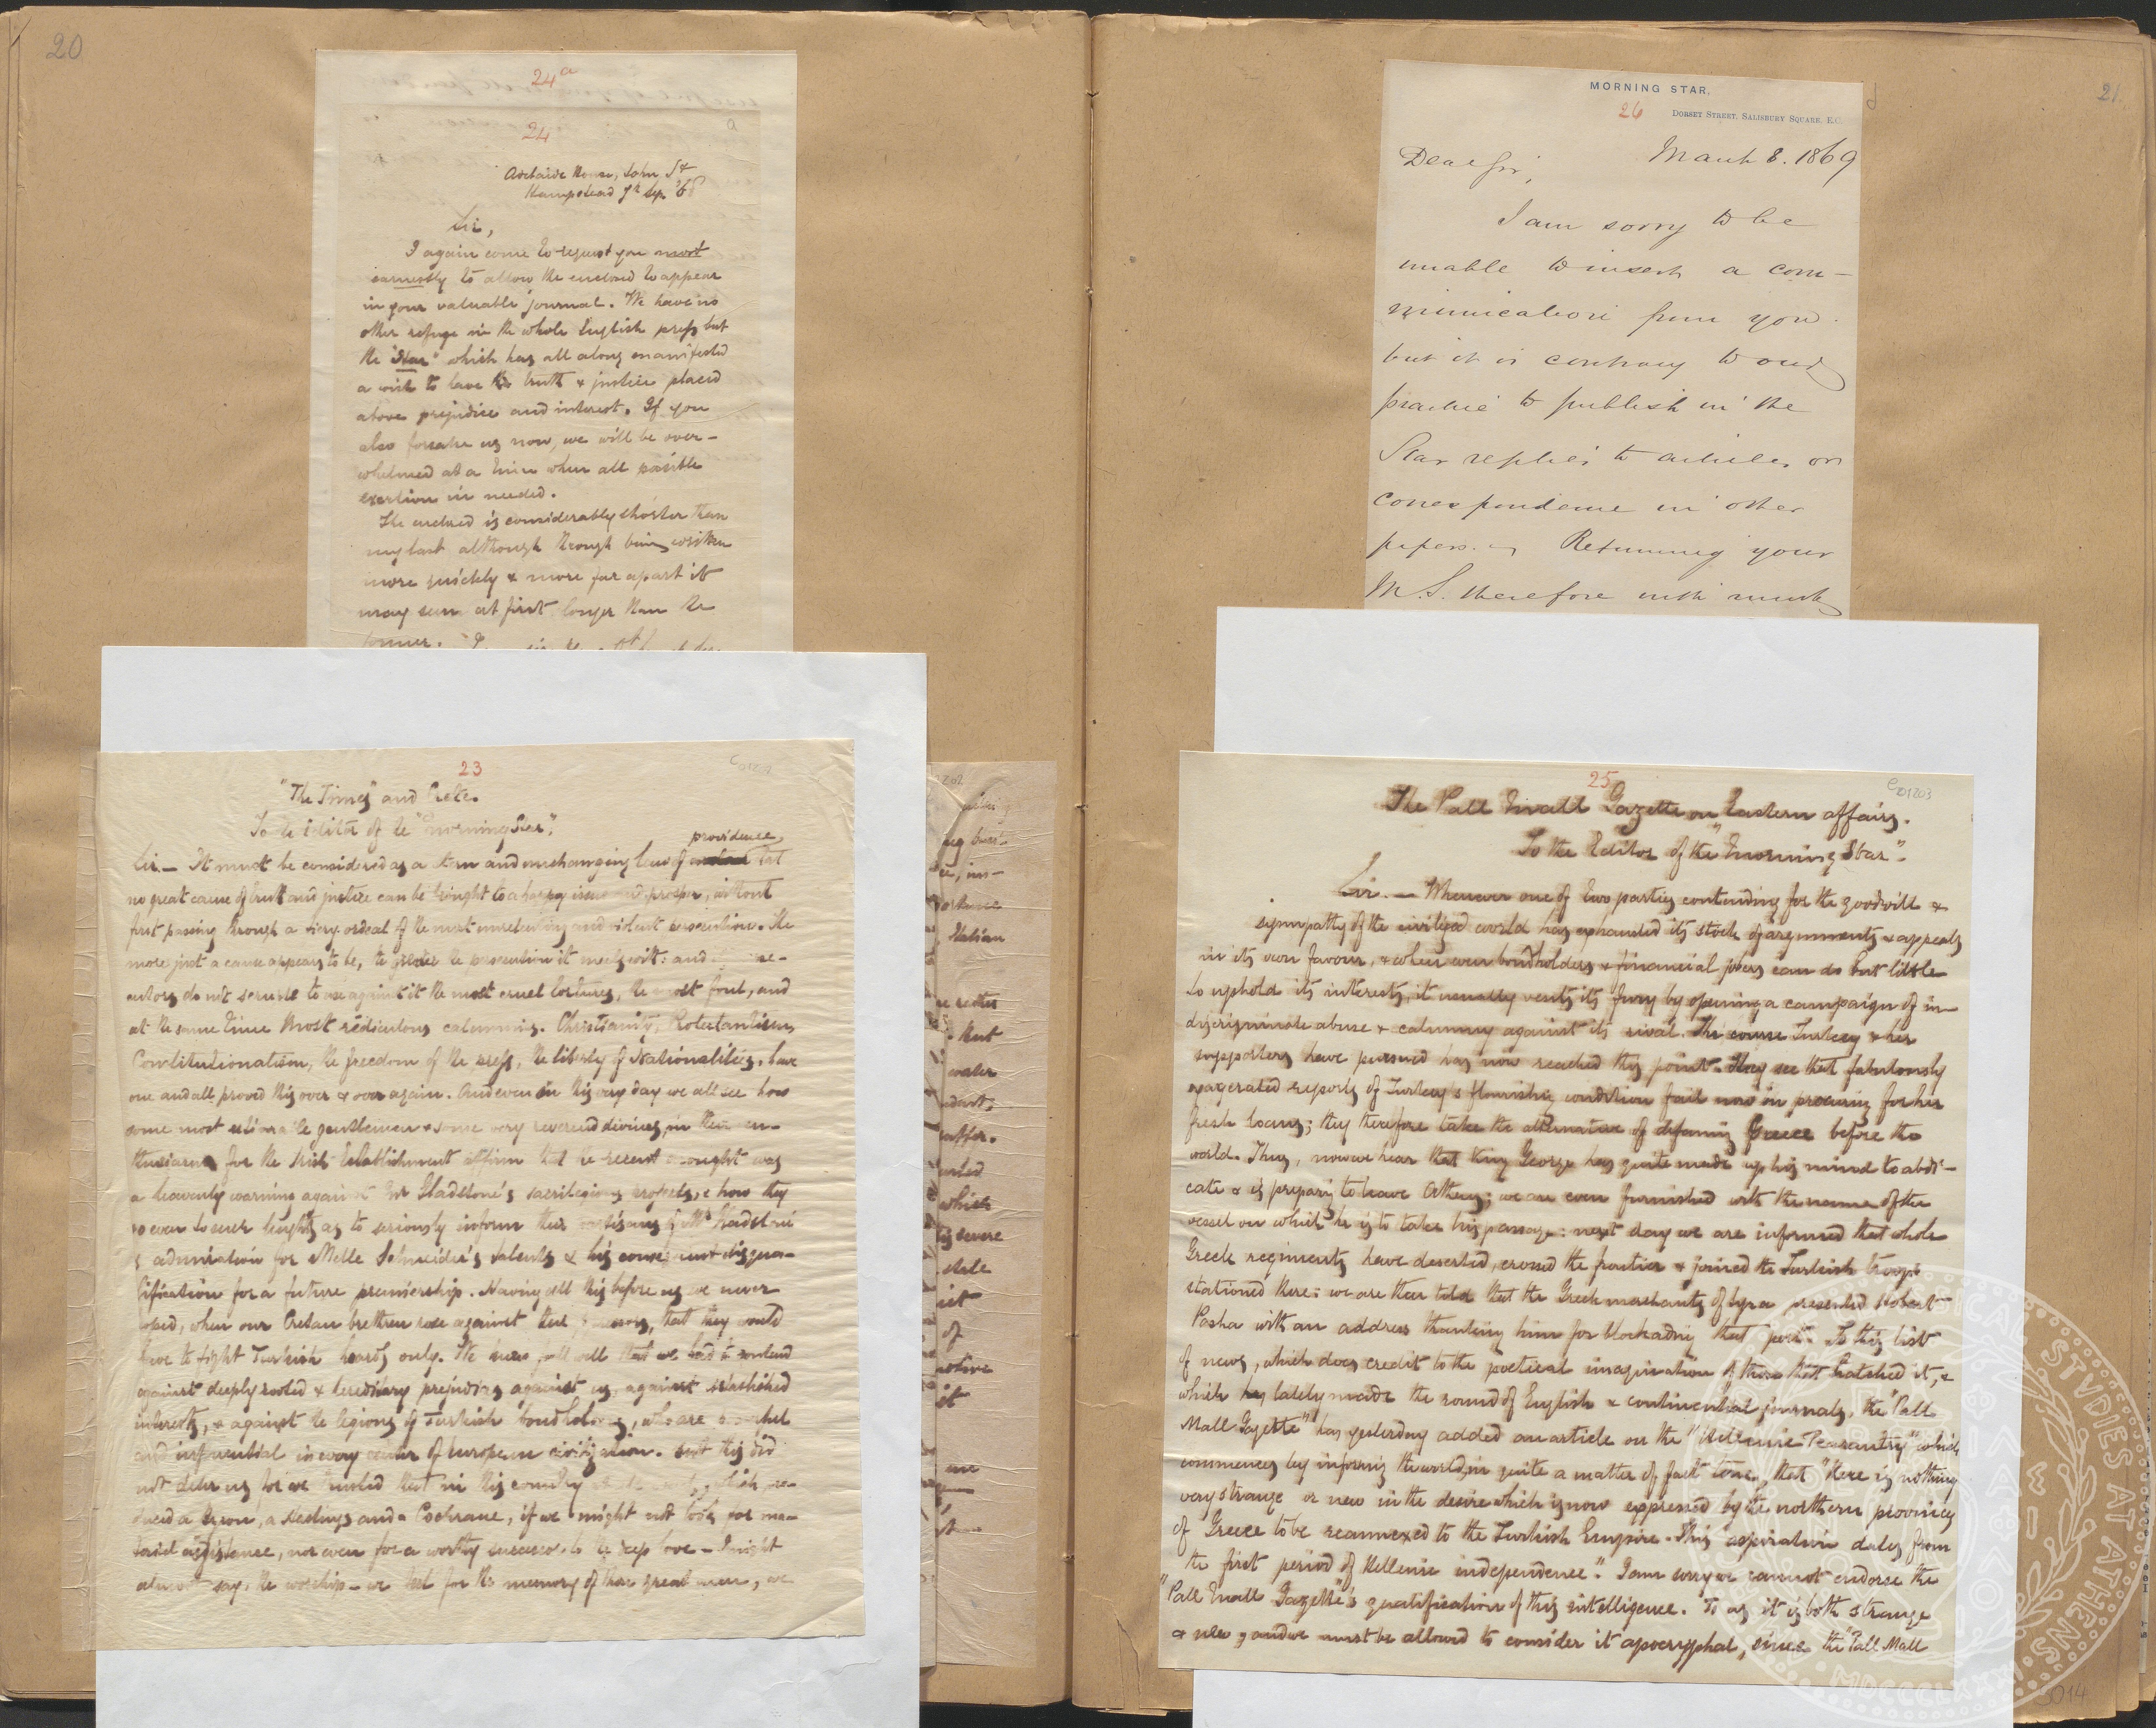 20
24a
24
a
Adelaide House, John St
Hampstead 7th Sep. '68
Sir,
I again come to request you most
earnestly to allow the enclosed to appear
in your valuable journal. We have no
other refuge in the whole English press but
the "Star" which has all along manifested
a wish to have the truth & justice placed
above prejudice and interest. If you
also forsake us now, we will be over-
whelmed at a time when all possible
exertion is needed.
The enclosed is considerably shorter than
my last although through being written
more quickly & more far apart it
may seem at first longer than the
former.
23
"The Times" and Crete.
To the Editor of the "Morning Star".
providence
Sir. — It must be considered as a stern and unchanging law of that
no great cause of truth and justice can be brought to a happy issue and prosper, without
first passing through a fiery ordeal of the most unrelenting and violent persecution. The
more just a cause appears to be, the greater the persecution it meets with: and
do not scruple to use against it the most cruel tortures, the most foul, and
at the same time most ridiculous calumnies. Christianity, Protestantism,
Constitutionalism, the freedom of the press, the liberty of Nationalities, have
one and all proved this over & over again. And even in this very day we all see how
some most estimable gentlemen & some very reverend divines, in their en-
thusiasm for the Irish Establishment affirm that the recent drought was
a heavenly warning against Mr Gladstone's sacrilegious projects, & how they
go even to such lengths as to seriously inform their partisans of Mr Gladstone
's admiration for Melle Schneider's talents & his consequent disqua-
lification for a future premiership. Having all this before us we never
hoped, when our Cretan brethren rose against their, that they would
have to fight Turkish hordes only. We knew full well that we had to contend
against deeply rooted & hereditary prejudices against us, against established
interests, & against the legions of Turkish bondholders, who are powerful
and influential in every center of European civilization. But this did
not deter us, for we trusted that in this country which pro-
duced a Byron, a Hastings and a Cochrane, if we might not look for ma-
terial assistance, nor even for a worthy successor to the deep love — I might
almost say, the worship — we feel for the memory of those great men, we
21.
MORNING STAR,
26
DORSET STREET, SALISBURY SQUARE, E.C.
March 8. 1869
Dear Sir,
I am sorry to be
unable to insert a com-
munication from you
but it is contrary to our
practice to publish in the
Star replies to articles or
correspondence in other
papers. Returning your
M.S. therefore with much
25
e01203
The Pall Mall Gazette on Eastern affairs.
To the Editor of the "Morning Star".
Sir. — Whenever one of two parties contending for the goodwill &
sympathy of the civilized world has exhausted its stock of arguments & appeals
in its own favour, & when even bondholders & financial jobers can do but little
to uphold its interests, it usually vents its fury by opening a campaign of in-
discriminate abuse & calumny against its rival. The course Turkey & her
supporters have pursued has now reached this point. They see that fabulously
exagerated reports of Turkey's flourishing condition fail now in procuring for her
fresh loans; they therefore take the alternative of defaming Greece before the
world. Thus, now we hear that King George has quite made up his mind to abdi-
cate & is preparing to leave Athens; we are even furnished with the name of the
vessel on which he is to take his passage: next day we are informed that whole
Greek regiments have deserted, crossed the frontier & joined the Turkish troops
stationed there: we are then told that the Greek merchants of Syra presented Hobart
Pasha with an address thanking him for blockading that port. To this list
of news, which does credit to the poetical imagination of those that hatched it, &
which has lately made the round of English & continental journals, the "Pall
Mall Gazette" has yesterday added an article on the "Hellenic Peasantry" which
commences by informing the world, in quite a matter of fact tone, that "there is nothing
very strange or new in the desire which is now expressed by the northern provinces
of Greece to be reannexed to the Turkish Empire. This aspiration dates from
the first period of Hellenic independence". I am sorry we cannot endorse the
"Pall Mall Gazette"'s qualification of this intelligence. To us it is both strange
& new, and we must be allowed to consider it apocryphal, since the "Pall Mall
3014